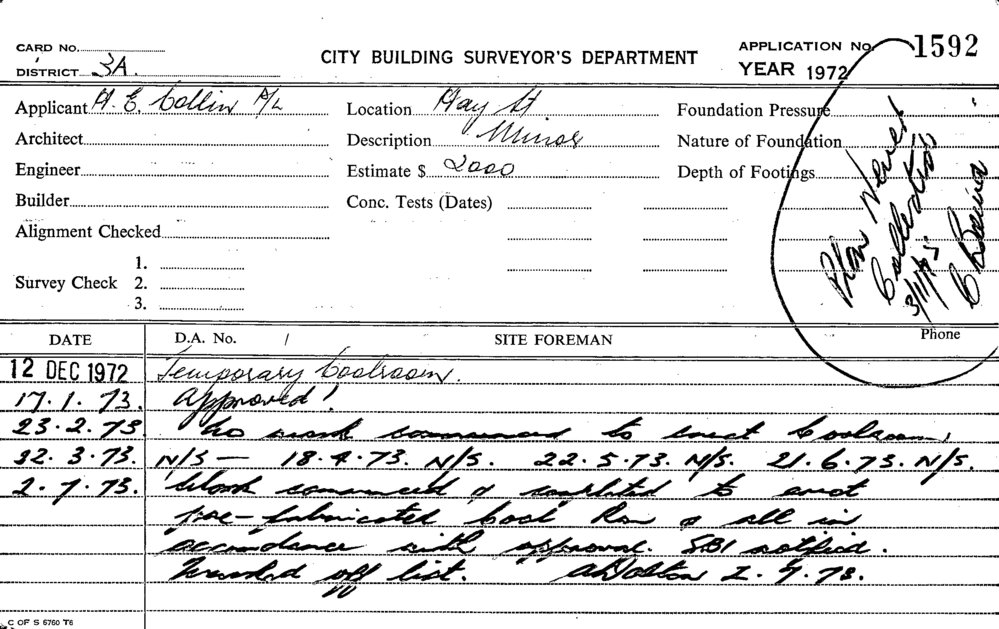 CARD No.
DISTRICT 3A.
CITY BUILDING SURVEYOR'S DEPARTMENT
APPLICATION No. 1592
YEAR 1972
Applicant H. E. Collin P/L
Location Hay St
Foundation Pressure
Architect
Description Minor
Nature of Foundation
Engineer
Estimate $ 2000
Depth of Footings
Builder
Conc. Tests (Dates)
Alignment Checked
Survey Check 1.
2.
3.
Plan Never
Collected
3/11/75
DATE
D.A. No. /
SITE FOREMAN
Phone
12 DEC 1972 Temporary Coolroom.
17.1.73. Approved!
23.2.73 No work commenced to erect Coolroom.
22.3.73. N/S — 18.4.73. N/S. 22.5.73. N/S. 21.6.73. N/S.
2.7.73. Work commenced & completed to erect
pre-fabricated Cool Rm & all in
accordance with approval. SBI notified.
Marked off list. 2.7.73.
C OF S 6760 T6